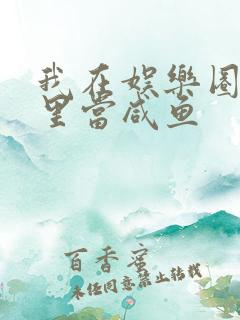 我在娱樂圈
里當咸鱼
百香蜜
未经同意禁止转载